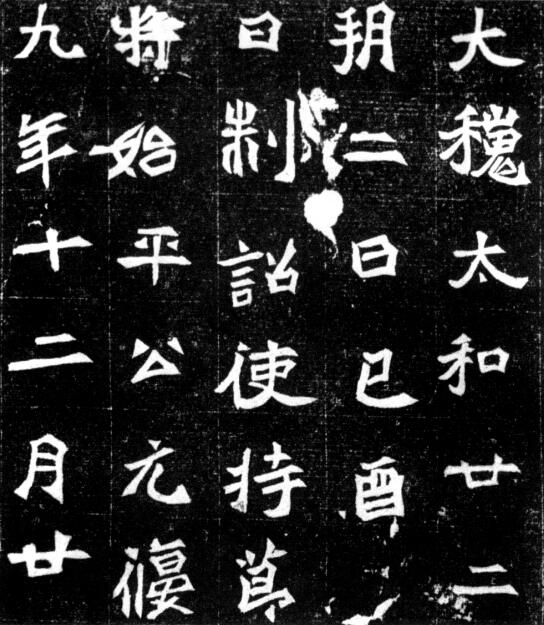 大魏太和廿二
朔二日己酉
日制詔使持節
將始平公元偃
九年十二月廿